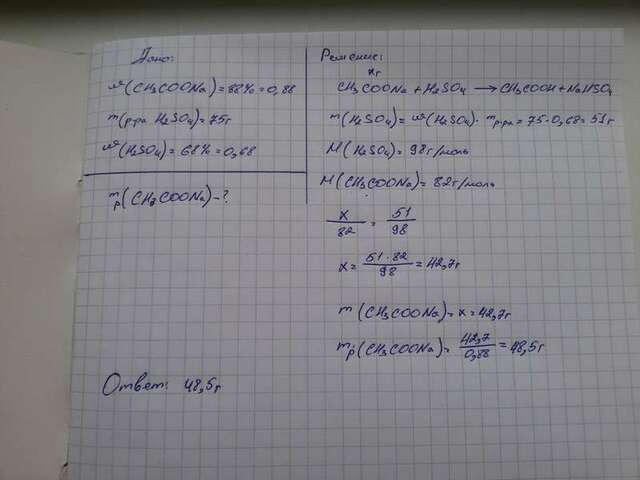 Дано:
w(CH₃COONa)=88%=0,88
m(р-ра H₂SO₄)=75г
w(H₂SO₄)=68%=0,68
mр(CH₃COONa)-?
Решение:
xг
CH₃COONa + H₂SO₄ → CH₃COOH + NaHSO₄
m(H₂SO₄)=w(H₂SO₄)·mр-ра=75·0,68=51г
M(H₂SO₄)=98г/моль
M(CH₃COONa)=82г/моль
x/82 = 51/98
x= 51·82/98 =42,7г
m(CH₃COONa)=x=42,7г
mр(CH₃COONa)= 42,7/0,88 =48,5г
Ответ: 48,5г